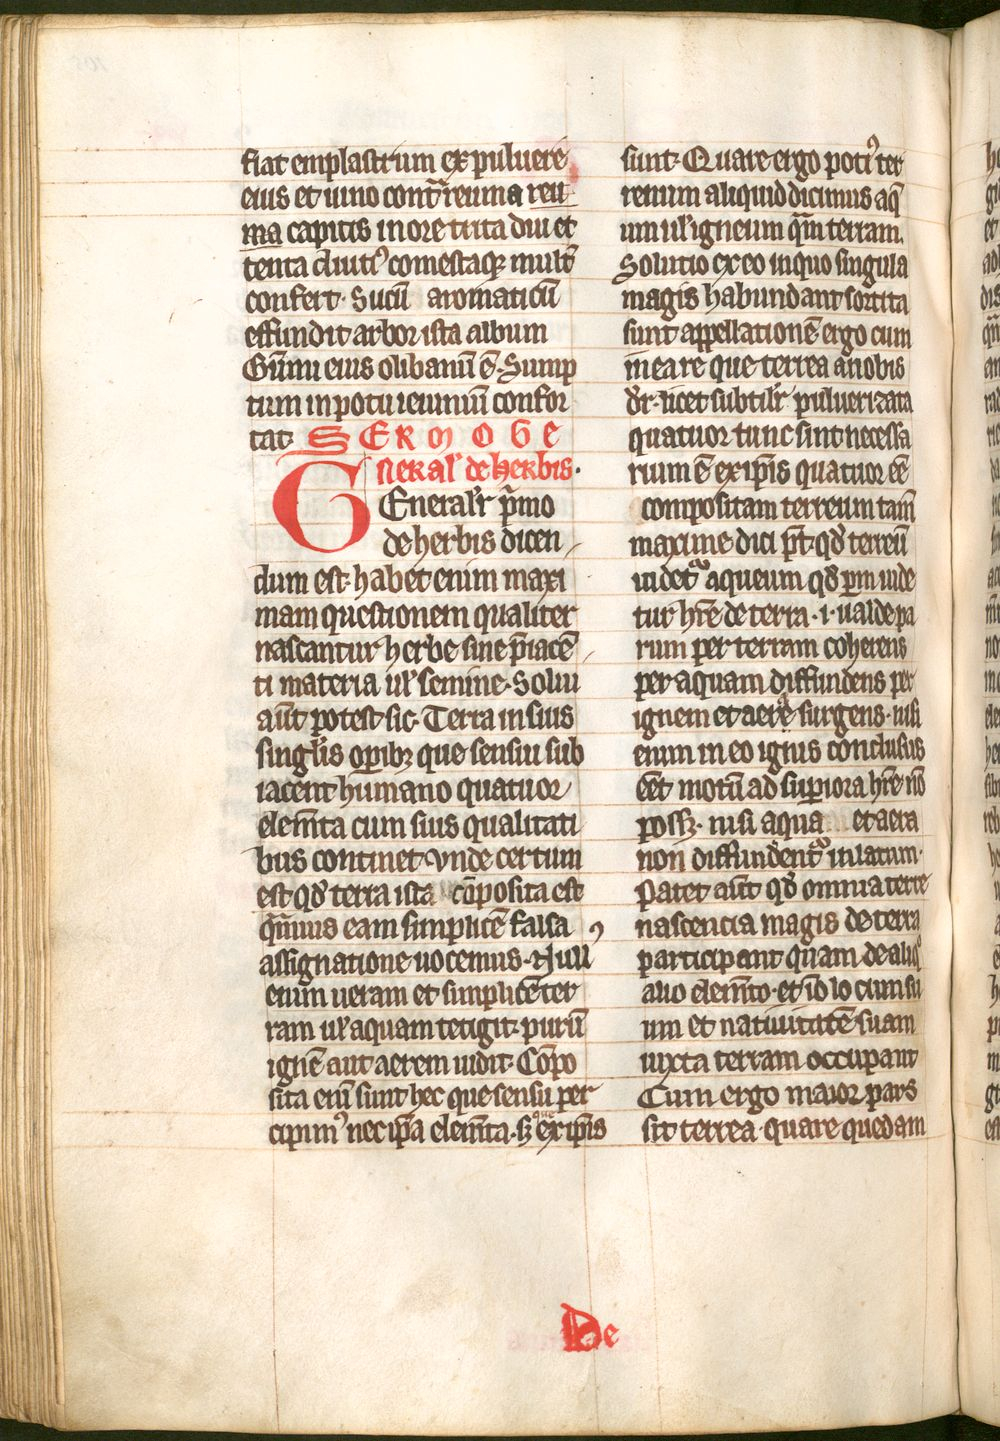 fiat emplastrum ex puluere
eius et uino cont̄ reuma reu
ma capitis in ore trita diu et
tenta diuti᷒ comestaqꝫ mult᷒
confert· Sucū aromaticū
effundit arbor ista album
Gūmi eius olibanū ē· Sump
tum in potu ieiuniū confor
tat· SERMO GE
NERAL' de herbis·
GEneral'r p̄mo
de herbis dicen
dum est· habet enim maxi
mam questionem qualiter
nascantur herbe sine p̄iacē
ti materia ul' semine· Solui
aūt potest sic· Terra in suis
singl'is oꝑibꝫ que sensui sub
iacent humano quatuor
elem̄ta cum suis qualitati
bus continet vnde certum
est qd̓ terra ista cōposita est
qm̄uis eam simplicē falsa
assignatione uocemus· Null᷒
enim ueram et simplicē ter
ram ul' aquam tetigit· purū
ignē aut aerem uidit· Cōpo
sita enī sunt hec que sensu per
cipim᷒ nec ip̄a elem̄ta· sꝫ que ex ip̄is
sunt· Quare ergo poti᷒ ter
renum aliquid dicimus aq̄
um ul' igneum qm̄ terram.
Solutio ex eo in quo singula
magis habundant sortita
sunt appellationē ergo cum
in ea re que terrea a nobis
dr̄· licet subtil'r puluerizata
quatuor tunc sint necessa
rium ē ex ip̄is quatuor eē
compositam terreum tam̄
maxime dici p̄t· qd̓ terreū
uidet᷒ aqueum qd̓ ꝑm uide
tur hr̄e de terra· i· ualde pa
rum per terram coherens
per aquam diffundens per
ignem et aerē surgens· nisi
enim in eo ignis conclusus
eēt motū ad suꝑiora hr̄e nō
possꝫ· nisi aqua et aera
non diffunderent᷒ in latum·
Patet aūt qd̓ omnia terre
nascencia magis de terra
participant quam de aliq᷒
alio elem̄to· et iō locium su
um et natiuitatē suam
iuxta terram occupant
Cum ergo maior pars
sit terrea· quare quedam
De